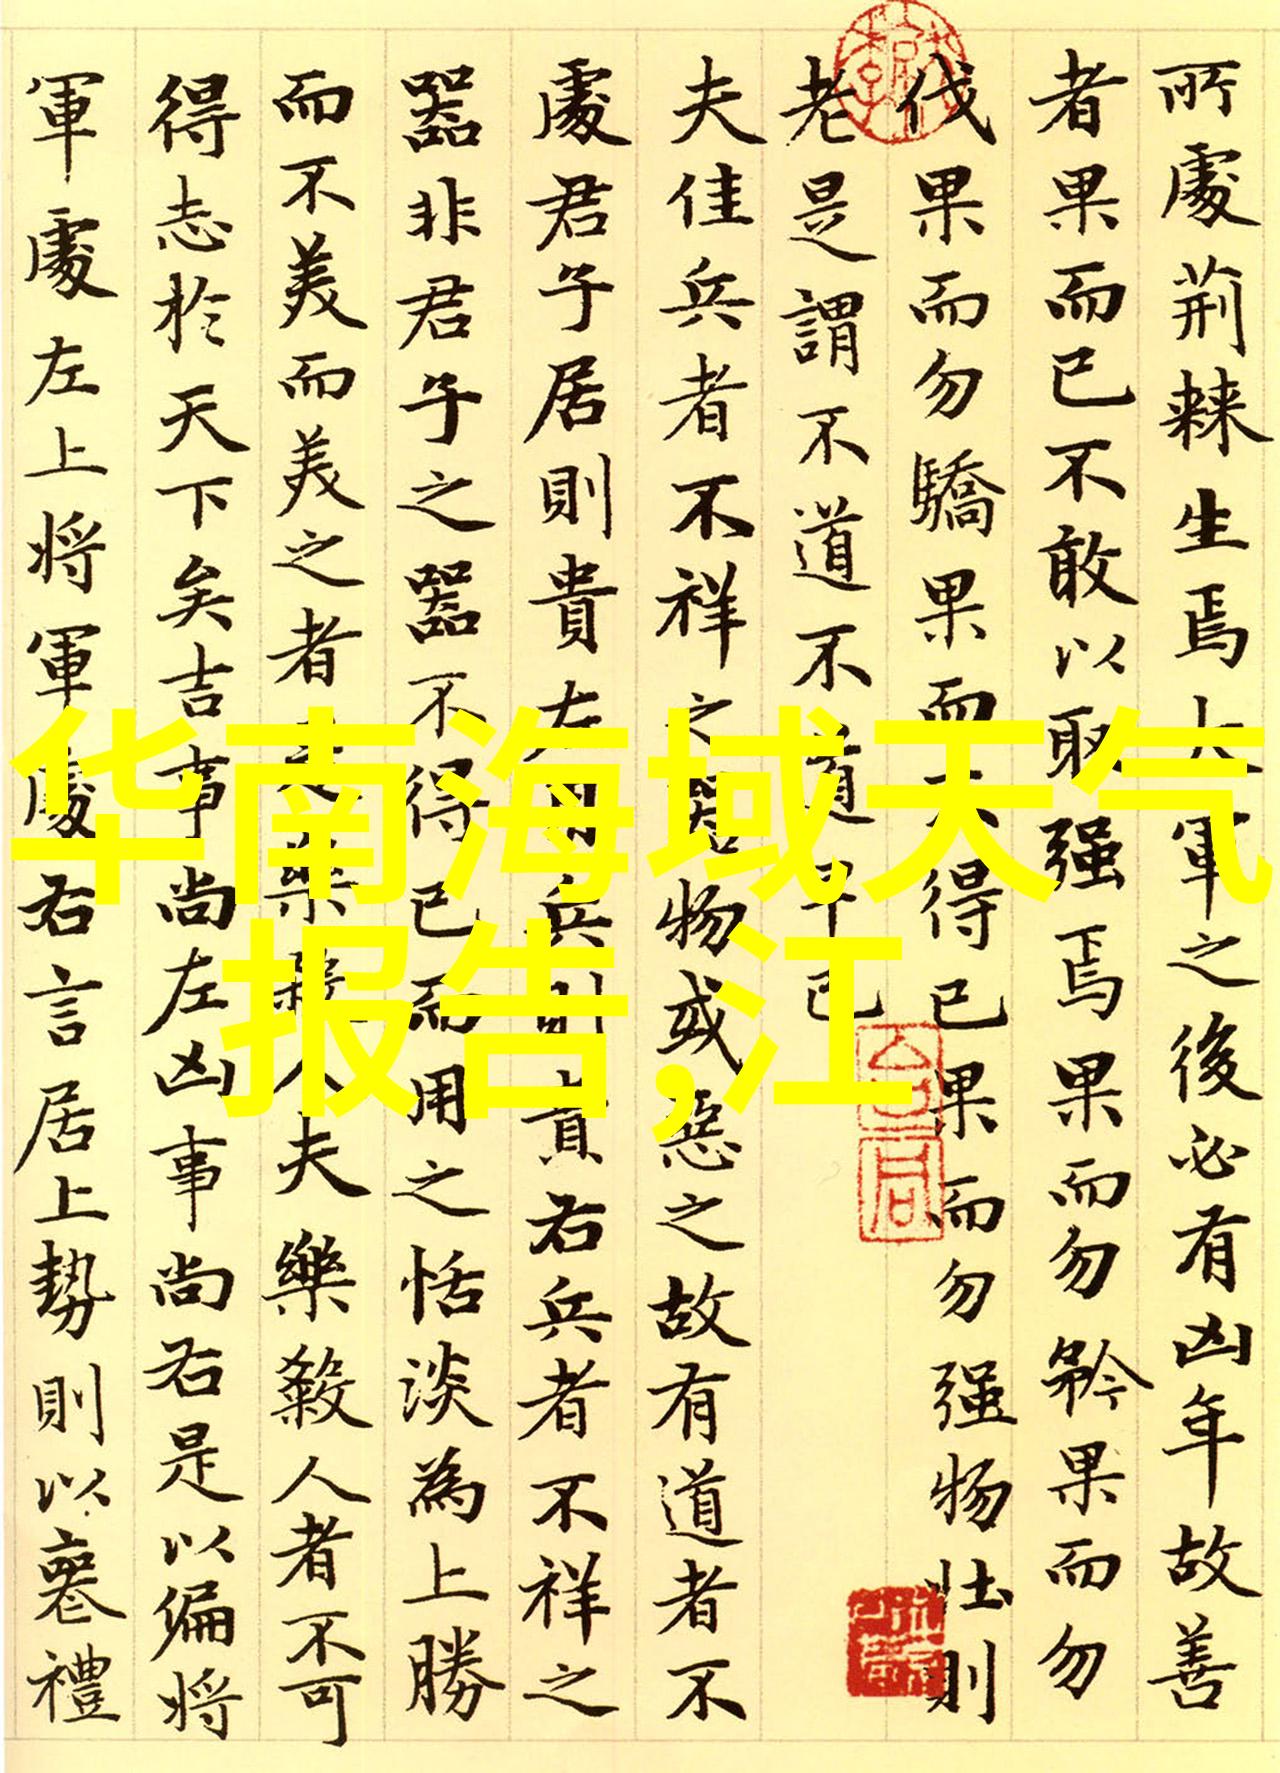 所處荊棘生焉大軍之後必有凶年故善
者果而已不敢以取强焉果而勿矜果而勿
伐果而勿驕果而不得已果而勿强物壮則
老是謂不道不道早已
夫佳兵者不祥之器物或惡之故有道者不
處君子居則貴左用兵則貴右兵者不祥之
器非君子之器不得已而用之恬淡為上勝
而不美而美之者是樂殺人夫樂殺人者不可
得志於天下矣吉事尚左凶事尚右是以偏將
軍處左上將軍處右言居上勢則以喪禮
华南海域天气
报告,江